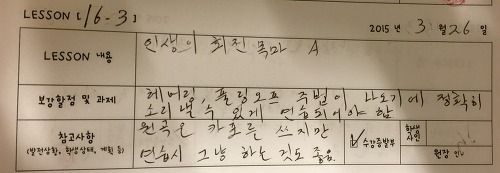 LESSON [16-3]
2015 년 3 월 26 일
LESSON 내용
인생의 회전목마 A
보강할점 및 과제
헤머링, 풀링오프 주법이 나오기에 정확히
소리낼 수 있게 연습되어야 함
참고사항
(발전상황, 학생상태, 계획 등)
원곡은 카포를 쓰지만
연습시 그냥 하는것도 좋음
수강증발부
학생
사인
원장 인